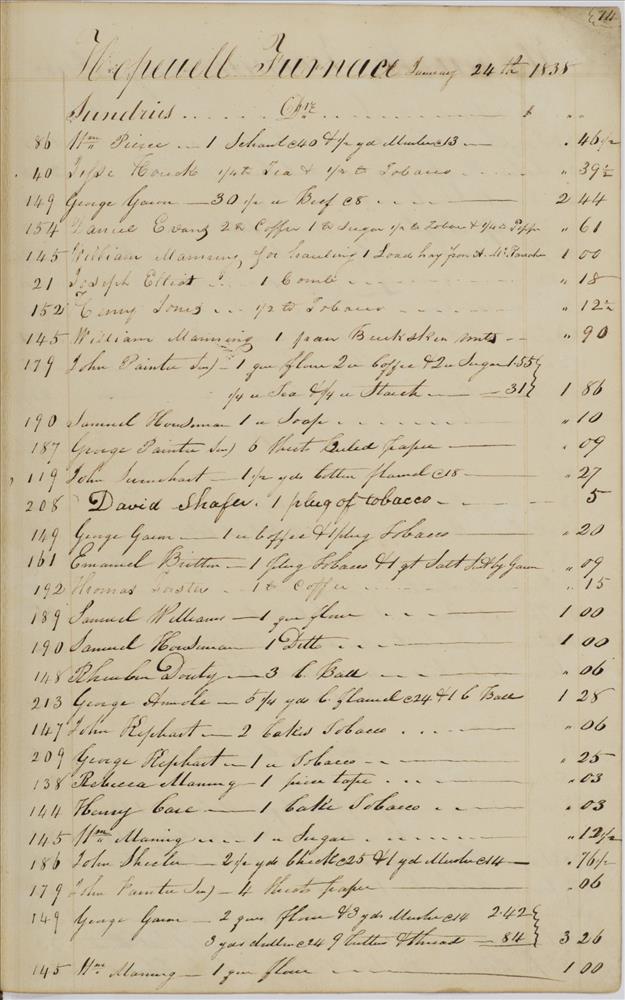 74
Hopewell Furnace January 24th 1838
Sundries Drs $
86 Wm Pierce 1 Shawl c40 & 1/2 yd Muslin c13 " 46 1/2
40 Jesse Houck 1/4 lb Tea & 1/2 lb Tobacco " 39 1/2
149 George Gavon 30 1/2 " Beef c8 2 44
154 Daniel Evans 2 lb Coffee 1 lb Sugar 1/2 lb Tobac & 1/4 lb Pepper " 61
145 William Manning for hauling 1 Load hay from 1 00
21 Joseph Elliot 1 Comb " 18
152 Henry Jones 1/2 lb Tobacco " 12 1/2
145 William Manning 1 pair Buckskin mitts " 90
179 John Painter Sen) 1 qur flour 2 " Coffee & 2 " Sugar 1.55
1/4 " Tea & 1/4 " Starch 31 1 86
190 Samuel Housman 1 " Soap " 10
187 George Painter Sen) 6 Sheets Ruled paper " 09
119 John 1 1/2 yds Cotton flannel c18 " 27
208 David Shafer. 1 plug of tobacco 5
149 George Gavon 1 " Coffee & 1 plug Tobacco " 20
161 Emanuel Britton 1 plug Tobacco & 1 qt Salt Sent by Gavon " 09
192 Thomas 1 lb Coffee " 15
189 Samuel Williams 1 qur flour 1 00
190 Samuel Housman 1 Ditto 1 00
148 Rheuben Douty 3 C. Ball " 06
213 George 5 1/4 yds C. flannel c24 & 1 C Ball 1 28
147 John Kephart 2 Cakes Tobacco " 06
209 George Kephart 1 " Tobacco " 25
138 Rebecca Maning 1 piece tape " 03
144 Henry Care 1 Cake Tobacco " 03
145 Wm Maning 1 " Sugar " 12 1/2
186 John Sheeler 2 1/2 yds Check c25 & 1 yd Muslin c14 " 76 1/2
179 John Painter Sen) 4 Sheets paper " 06
149 George Gavon 2 qurs flour & 3 yds Muslin c14 2.42
3 yds c24 9 buttons & thread 84 3 26
145 Wm Maning 1 qur flour 1 00